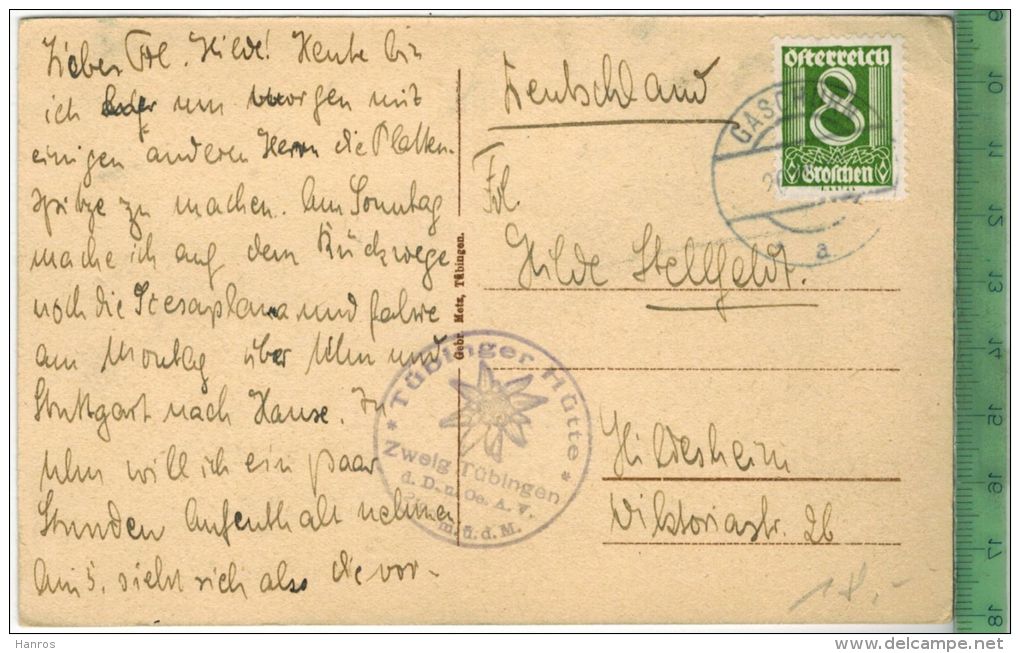 Lieber Frl. Hilde! Heute bin
ich um morgen mit
einigen anderen Herrn die Platten-
spitze zu machen. Am Sonntag
mache ich auf dem Rückwege
noch die Scesaplana und fahre
am Montag über Ulm und
Stuttgart nach Hause. In
Ulm will ich ein paar
Stunden Aufenthalt nehmen
Am 5. sieht sich also die vor-
Gebr. Metz, Tübingen.
Deutschland
Frl.
Hilde Stellfeldt.
Hildesheim
Viktoriastr. 26
Österreich
8
Groschen
GASCH
a
* Tübinger Hütte *
Zweig Tübingen
d. D. u. Oe. A. V.
m. ü. d. M.
18.-
9
10
11
12
13
14
15
16
17
18
Hanros
www.delcampe.net